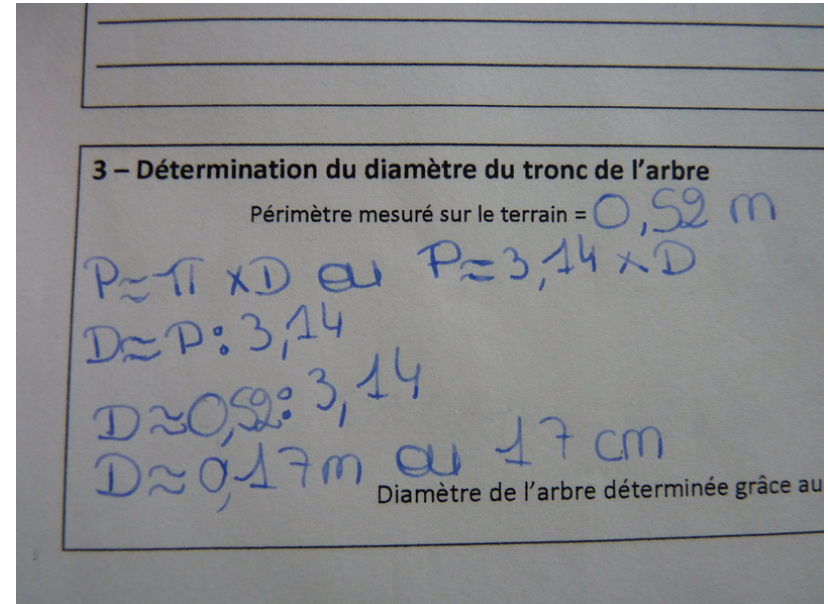 3 – Détermination du diamètre du tronc de l'arbre
Périmètre mesuré sur le terrain = 0,52 m
P≈π×D ou P≈3,14×D
D≈P:3,14
D≈0,52:3,14
D≈0,17m ou 17 cm
Diamètre de l'arbre déterminée grâce au